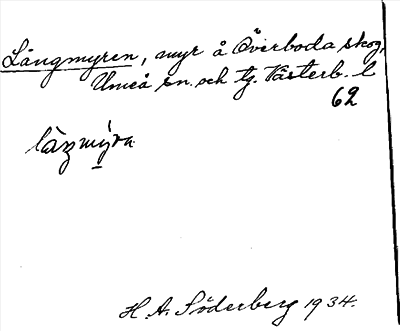 Långmyren, myr å Överboda skog,
Umeå sn. och tg. Västerb. l
62
làŋmýra
H. A. Söderberg 1934.